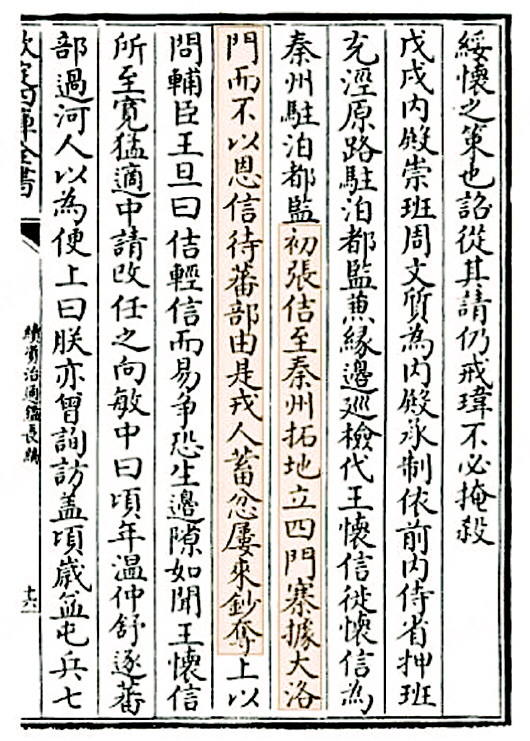 綏懷之策也詔從其請仍戒瑋不必掩殺
戊戌内殿崇班周文質為内殿承制依前内侍省押班
充涇原路駐泊都監兼緣邊廵檢代王懷信徙懷信為
秦州駐泊都監初張佶至秦州拓地立四門寨據大洛
門而不以恩信待蕃部由是戎人蓄忿屢來鈔奪上以
問輔臣王旦曰佶輕信而易争恐生邊隙如聞王懷信
所至寛猛適中請改任之向敏中曰頃年温仲舒逐蕃
部過河人以為便上曰朕亦曾詢訪盖頃嵗益屯兵七
欽定四庫全書
續資治通鑑長編
十六